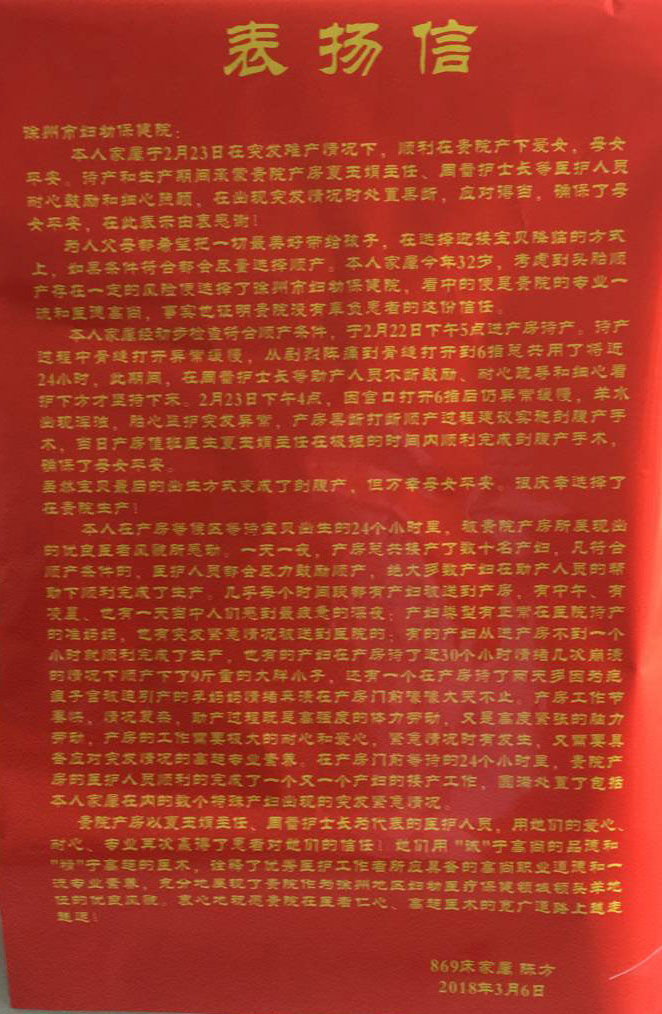 表扬信
徐州市妇幼保健院：
本人家属于2月23日在突发难产情况下，顺利在贵院产下爱女，母女
平安。待产和生产期间承蒙贵院产房夏玉娟主任、周蕾护士长等医护人员
耐心鼓励和细心照顾，在出现突发情况时处置果断，应对得当，确保了母
女平安，在此表示由衷感谢！
为人父母都希望把一切最美好带给孩子，在选择迎接宝贝降临的方式
上，如果条件符合都会尽量选择顺产。本人家属今年32岁，考虑到头胎顺
产存在一定的风险便选择了徐州市妇幼保健院，看中的便是贵院的专业一
流和医德高尚，事实也证明贵院没有辜负患者的这份信任。
本人家属经初步检查符合顺产条件，于2月22日下午5点进产房待产。待产
过程中骨缝打开异常缓慢，从剧烈阵痛到骨缝打开到6指总共用了将近
24小时，此期间，在周蕾护士长等助产人员不断鼓励、耐心疏导和细心看
护下方才坚持下来。2月23日下午4点，因宫口打开6指后仍异常缓慢，羊水
出现浑浊，胎心监护突发异常，产房果断打断顺产过程建议实施剖腹产手
术，当日产房值班医生夏玉娟主任在极短的时间内顺利完成剖腹产手术，
确保了母女平安。
虽然宝贝最后的出生方式变成了剖腹产，但万幸母女平安。很庆幸选择了
在贵院生产！
本人在产房等候区等待宝贝出生的24个小时里，被贵院产房所展现出
的优良医者风貌所感动。一天一夜，产房总共接产了数十名产妇，凡符合
顺产条件的，医护人员都会尽力鼓励顺产，绝大多数产妇在助产人员的帮
助下顺利完成了生产。几乎每个时间段都有产妇被送到产房，有中午、有
凌晨、也有一天当中人们感到最疲惫的深夜；产妇类型有正常在医院待产
的准妈妈，也有突发紧急情况被送到医院的；有的产妇从进产房不到一个
小时就顺利完成了生产，也有的产妇在产房待了近30个小时情绪几次崩溃
的情况下顺产下了9斤重的大胖小子，还有一个在产房待了两天多因为疤
痕子宫被迫引产的早妈妈情绪崩溃在产房门前嚎嚎大哭不止。产房工作节
奏快，情况复杂，助产过程既是高强度的体力劳动，又是高度紧张的脑力
劳动，产房的工作需要极大的耐心和爱心，紧急情况时有发生，又需要具
备应对突发情况的高超专业素养。在产房门前等待的24个小时里，贵院产
房的医护人员顺利的完成了一个又一个产妇的接产工作，圆满处置了包括
本人家属在内的数个特殊产妇出现的突发紧急情况。
贵院产房以夏玉娟主任、周蕾护士长为代表的医护人员，用她们的爱心、
耐心、专业再次赢得了患者对她们的信任！她们用"诚"于高尚的品德和
"精"于高超的医术，诠释了优秀医护工作者所应具备的高尚职业道德和一
流专业素养，充分地展现了贵院作为徐州地区妇幼医疗保健领域领头羊地
位的优良风貌。衷心地祝愿贵院在医者仁心、高超医术的宽广道路上越走
越远！
869床家属 陈方
2018年3月6日